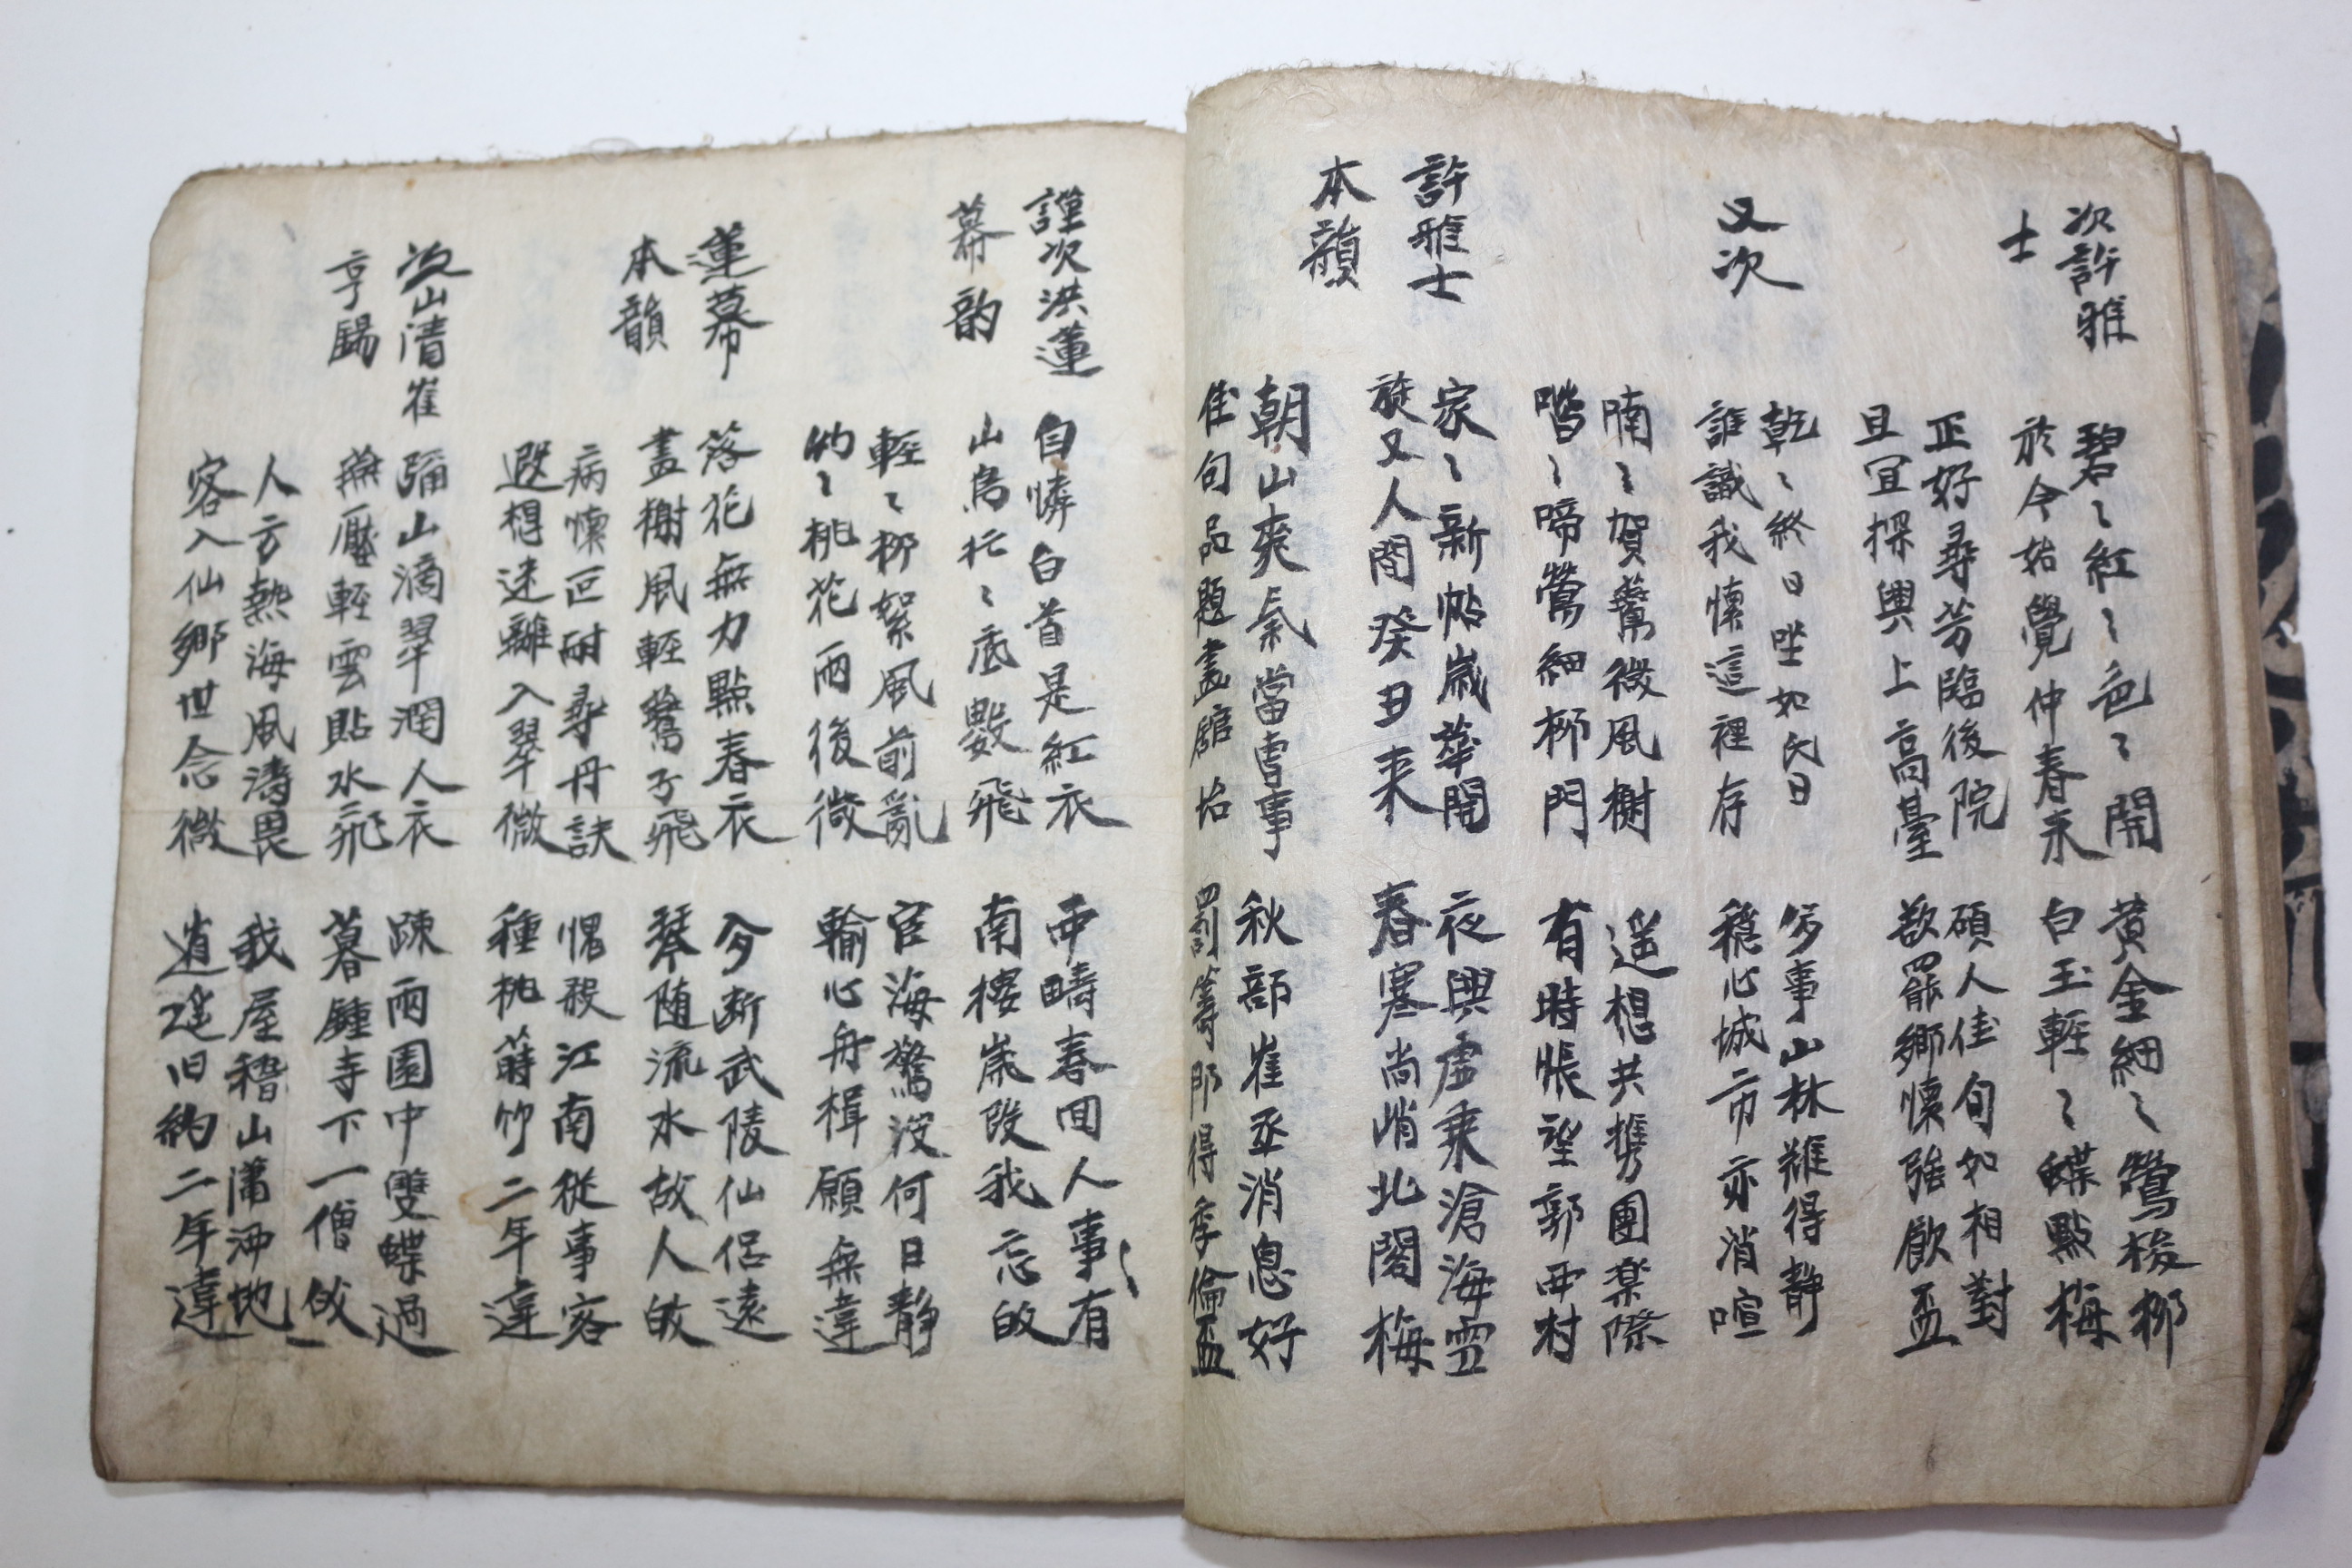 次許雅
士
碧〻紅〻色〻開
於今始覺仲春来
黃金細〻鶯梭柳
白玉輕〻蝶點梅
正好尋芳臨後院
且宜探興上高臺
碩人佳句如相對
欲罷鄉懷強飮盃
又次
乾〻終日坐如氏日
誰識我懷這裡存
多事山林難得静
穩心城市亦消喧
喃〻賀鷰微風榭
喈〻啼鶯細柳門
遥想共携團楽際
有時悵望郭西村
許雅士
本韻
家〻新帖歲華開
旋又人間癸丑来
夜興虛乗滄海雪
春寒尚峭北閣梅
朝山爽氣當曹事
佳句品題畫舘坮
秋部崔丞消息好
罰籌那得季倫盃
謹次洪蓮
幕韵
自憐白首是紅衣
山鳥忙〻底數飛
西疇春回人事有
南樓歲改我忘皈
輕〻柳絮風前亂
灼〻桃花雨後微
宦海驚没何日静
輸心舟楫願無違
蓮幕
本韻
落花無力點春衣
畫榭風輕鷰子飛
今斷武陵仙侶遠
琴随流水故人皈
病懷叵耐尋丹訣
遐想迷離入翠微
愧殺江南從事客
種桃蒔竹二年違
次山清崔
亨錫
彌山滴翠潤人衣
無壓輕雲貼水飛
踈雨園中雙蝶過
暮鍾寺下一僧皈
人方熱海風濤畏
客入仙鄉世念微
我屋稽山瀟沛地
逍遥旧約二年違